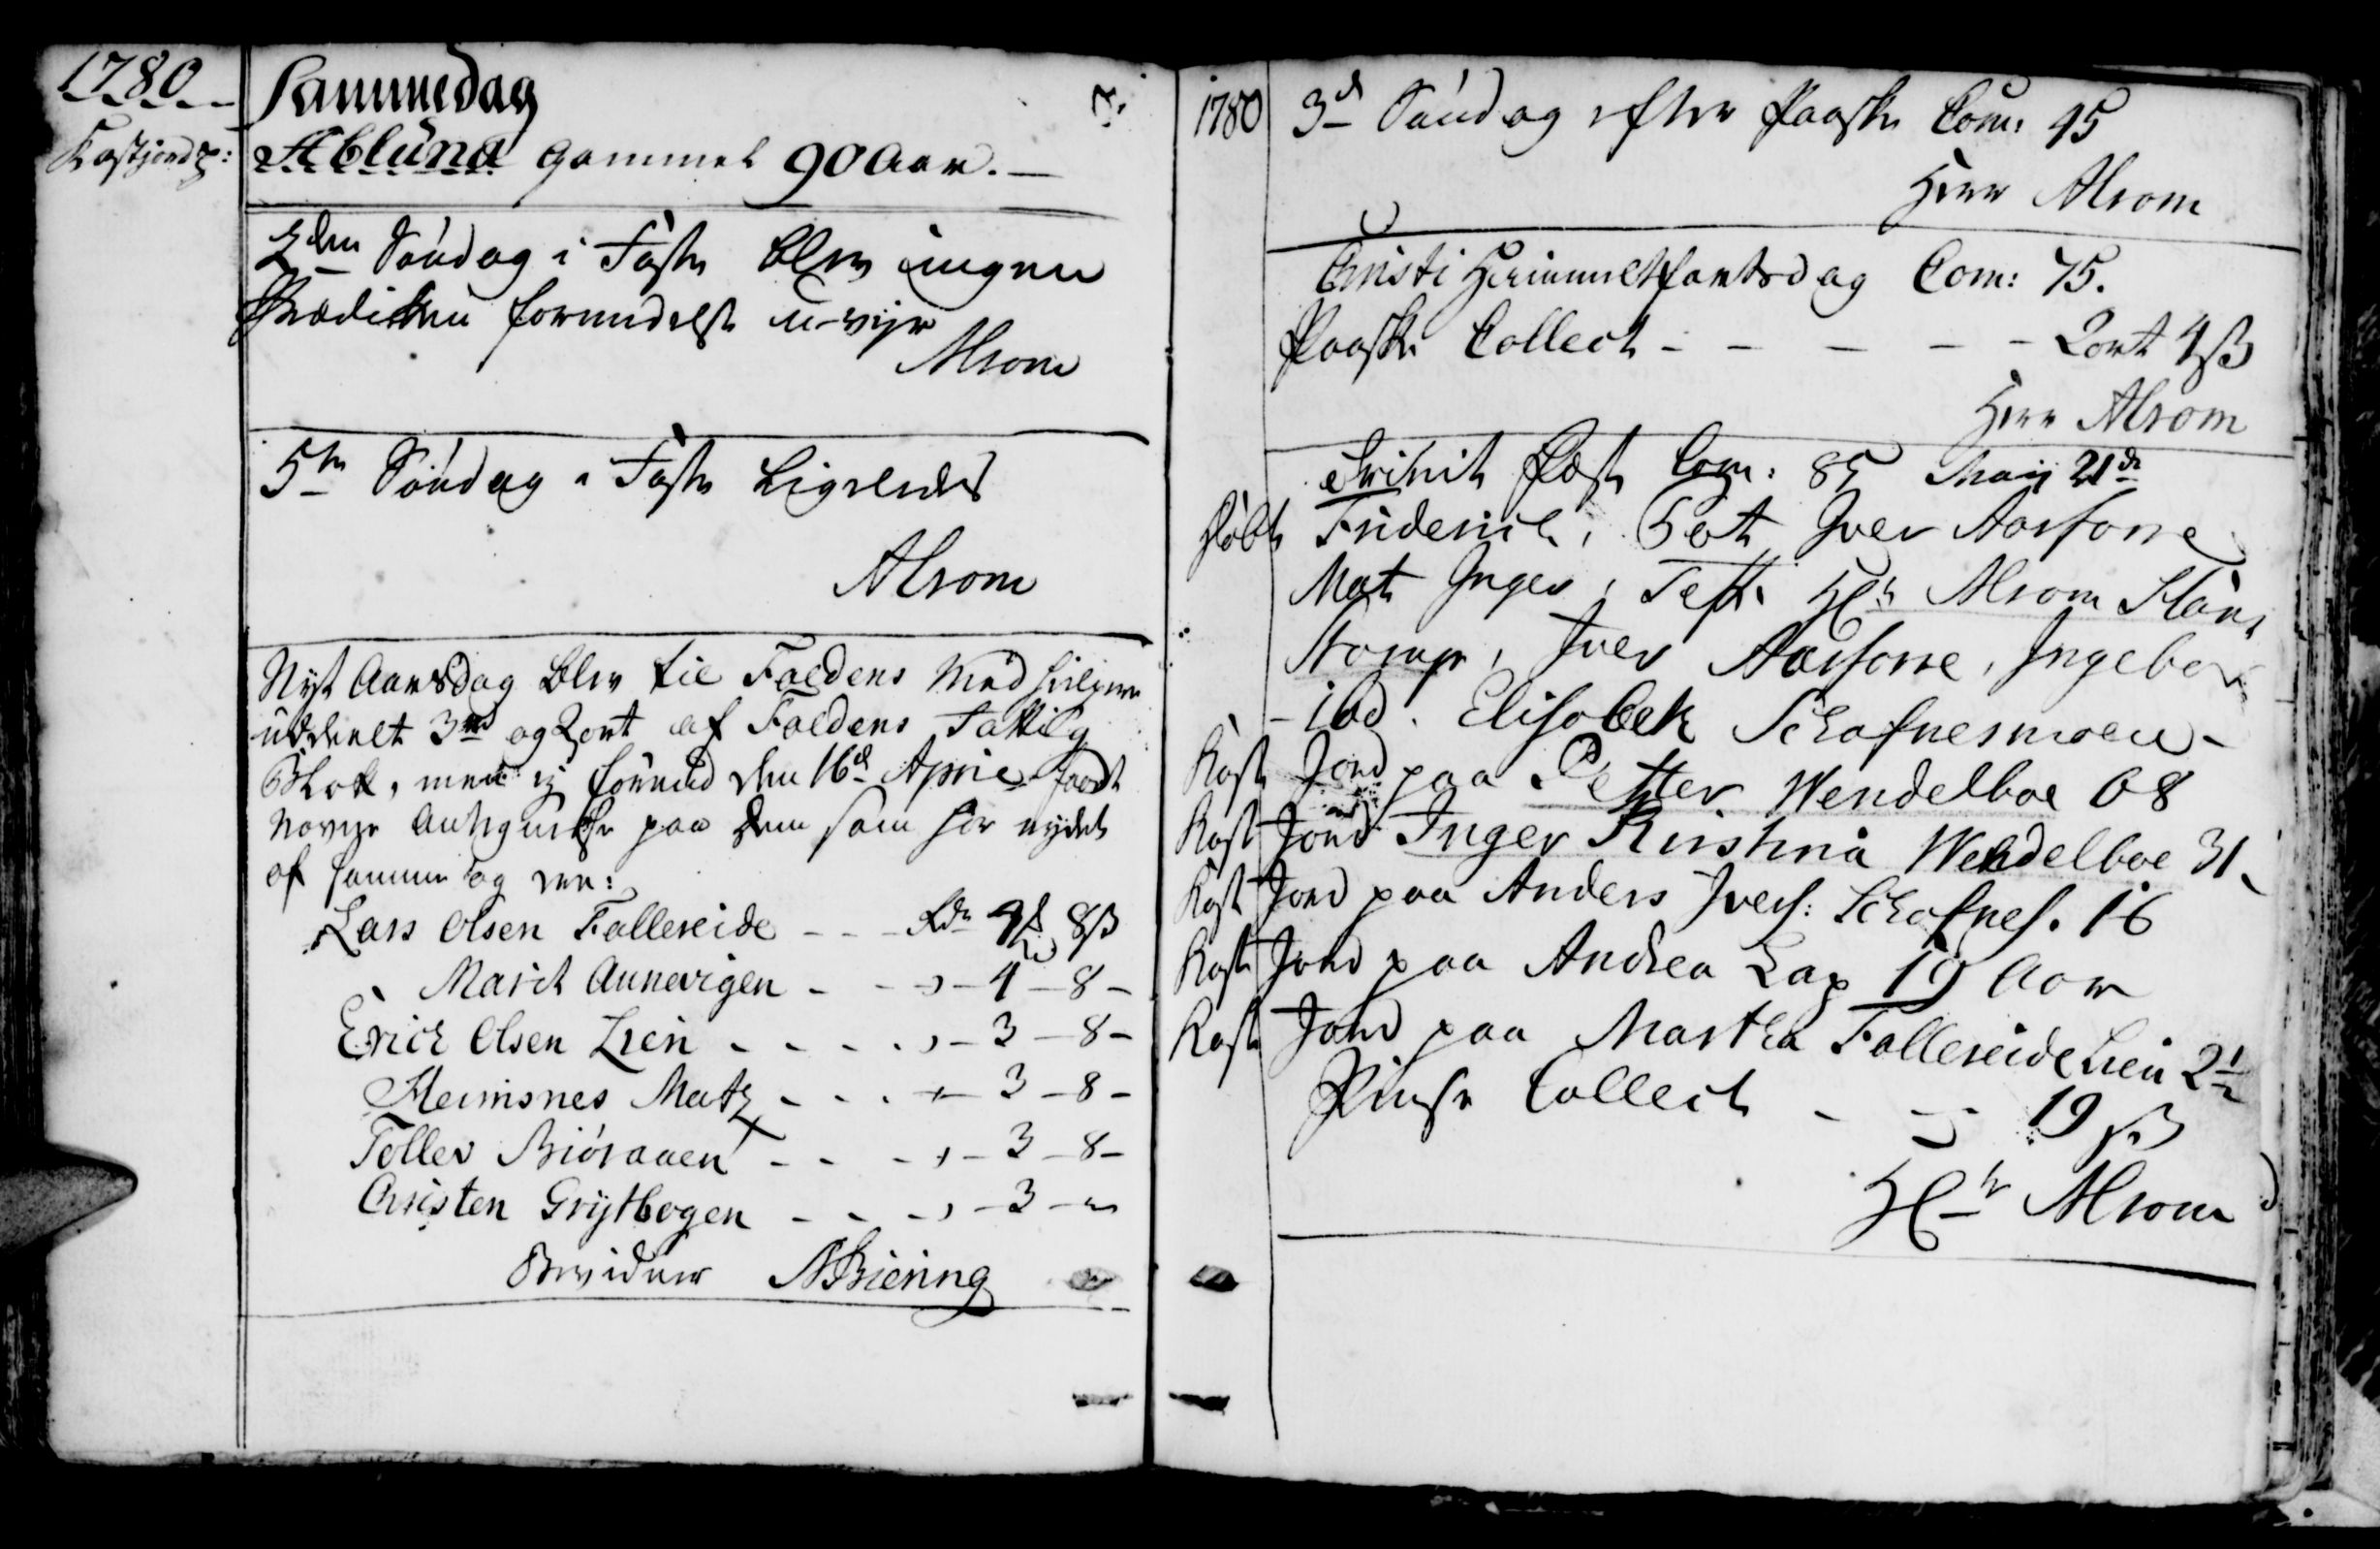 1780
Kastjord p:
Sammedag
Ablund gammel 90 Aar.
7.
2den Søndag i Faste blev ingen
Prædiken formedelst u-veyr
Alrom
5te Søndag i Faste Ligeledes
Alrom
Nyt Aarsdag blev til Foldens
uddeelt 3 og 2 ort af Foldens Fattig
Blok, men ej førend den 16d April
paa dem som har nydet
af samme og ere:
Lars Olsen Fallereide - - - Rd 4 8 ß
Marit Aunevigen - - - 4 - 8 -
Erich Olsen Lien - - - - 3 - 8 -
Heimsnes Matz - - - 3 - 8 -
Toller Biøraaen - - - 3 - 8 -
Christen Grytbogen - - - 3 - "
Bevidner NBiering
1780
3d Søndag efter Paaske Com: 45
Herr Alrom
Christi Himmelfartsdag Com: 75.
Paaske Collect - - - - - 2 ort 4 ß
Herr Alrom
Trinit Fest Com: 85 Maij 21de
Døbt Friderich, Pat Iver Aarforre
Mat Inger, Test. Hr Alrom
Iver Aarforre, Ingebor
- ibd. Elisabeth Schafnesmoen -
Kast Jord paa Petter Wendelboe 68
Kast Jord Inger Kirstina Wendelboe 31
Kast Jord paa Anders Ivers: Schafnes. 16
Kast Jord paa Andrea Lap 19 Aar
Kast Jord paa Martha Fallereide Lien 2 1/2
Pintse Collect - - 19 ß
Hr Alrom